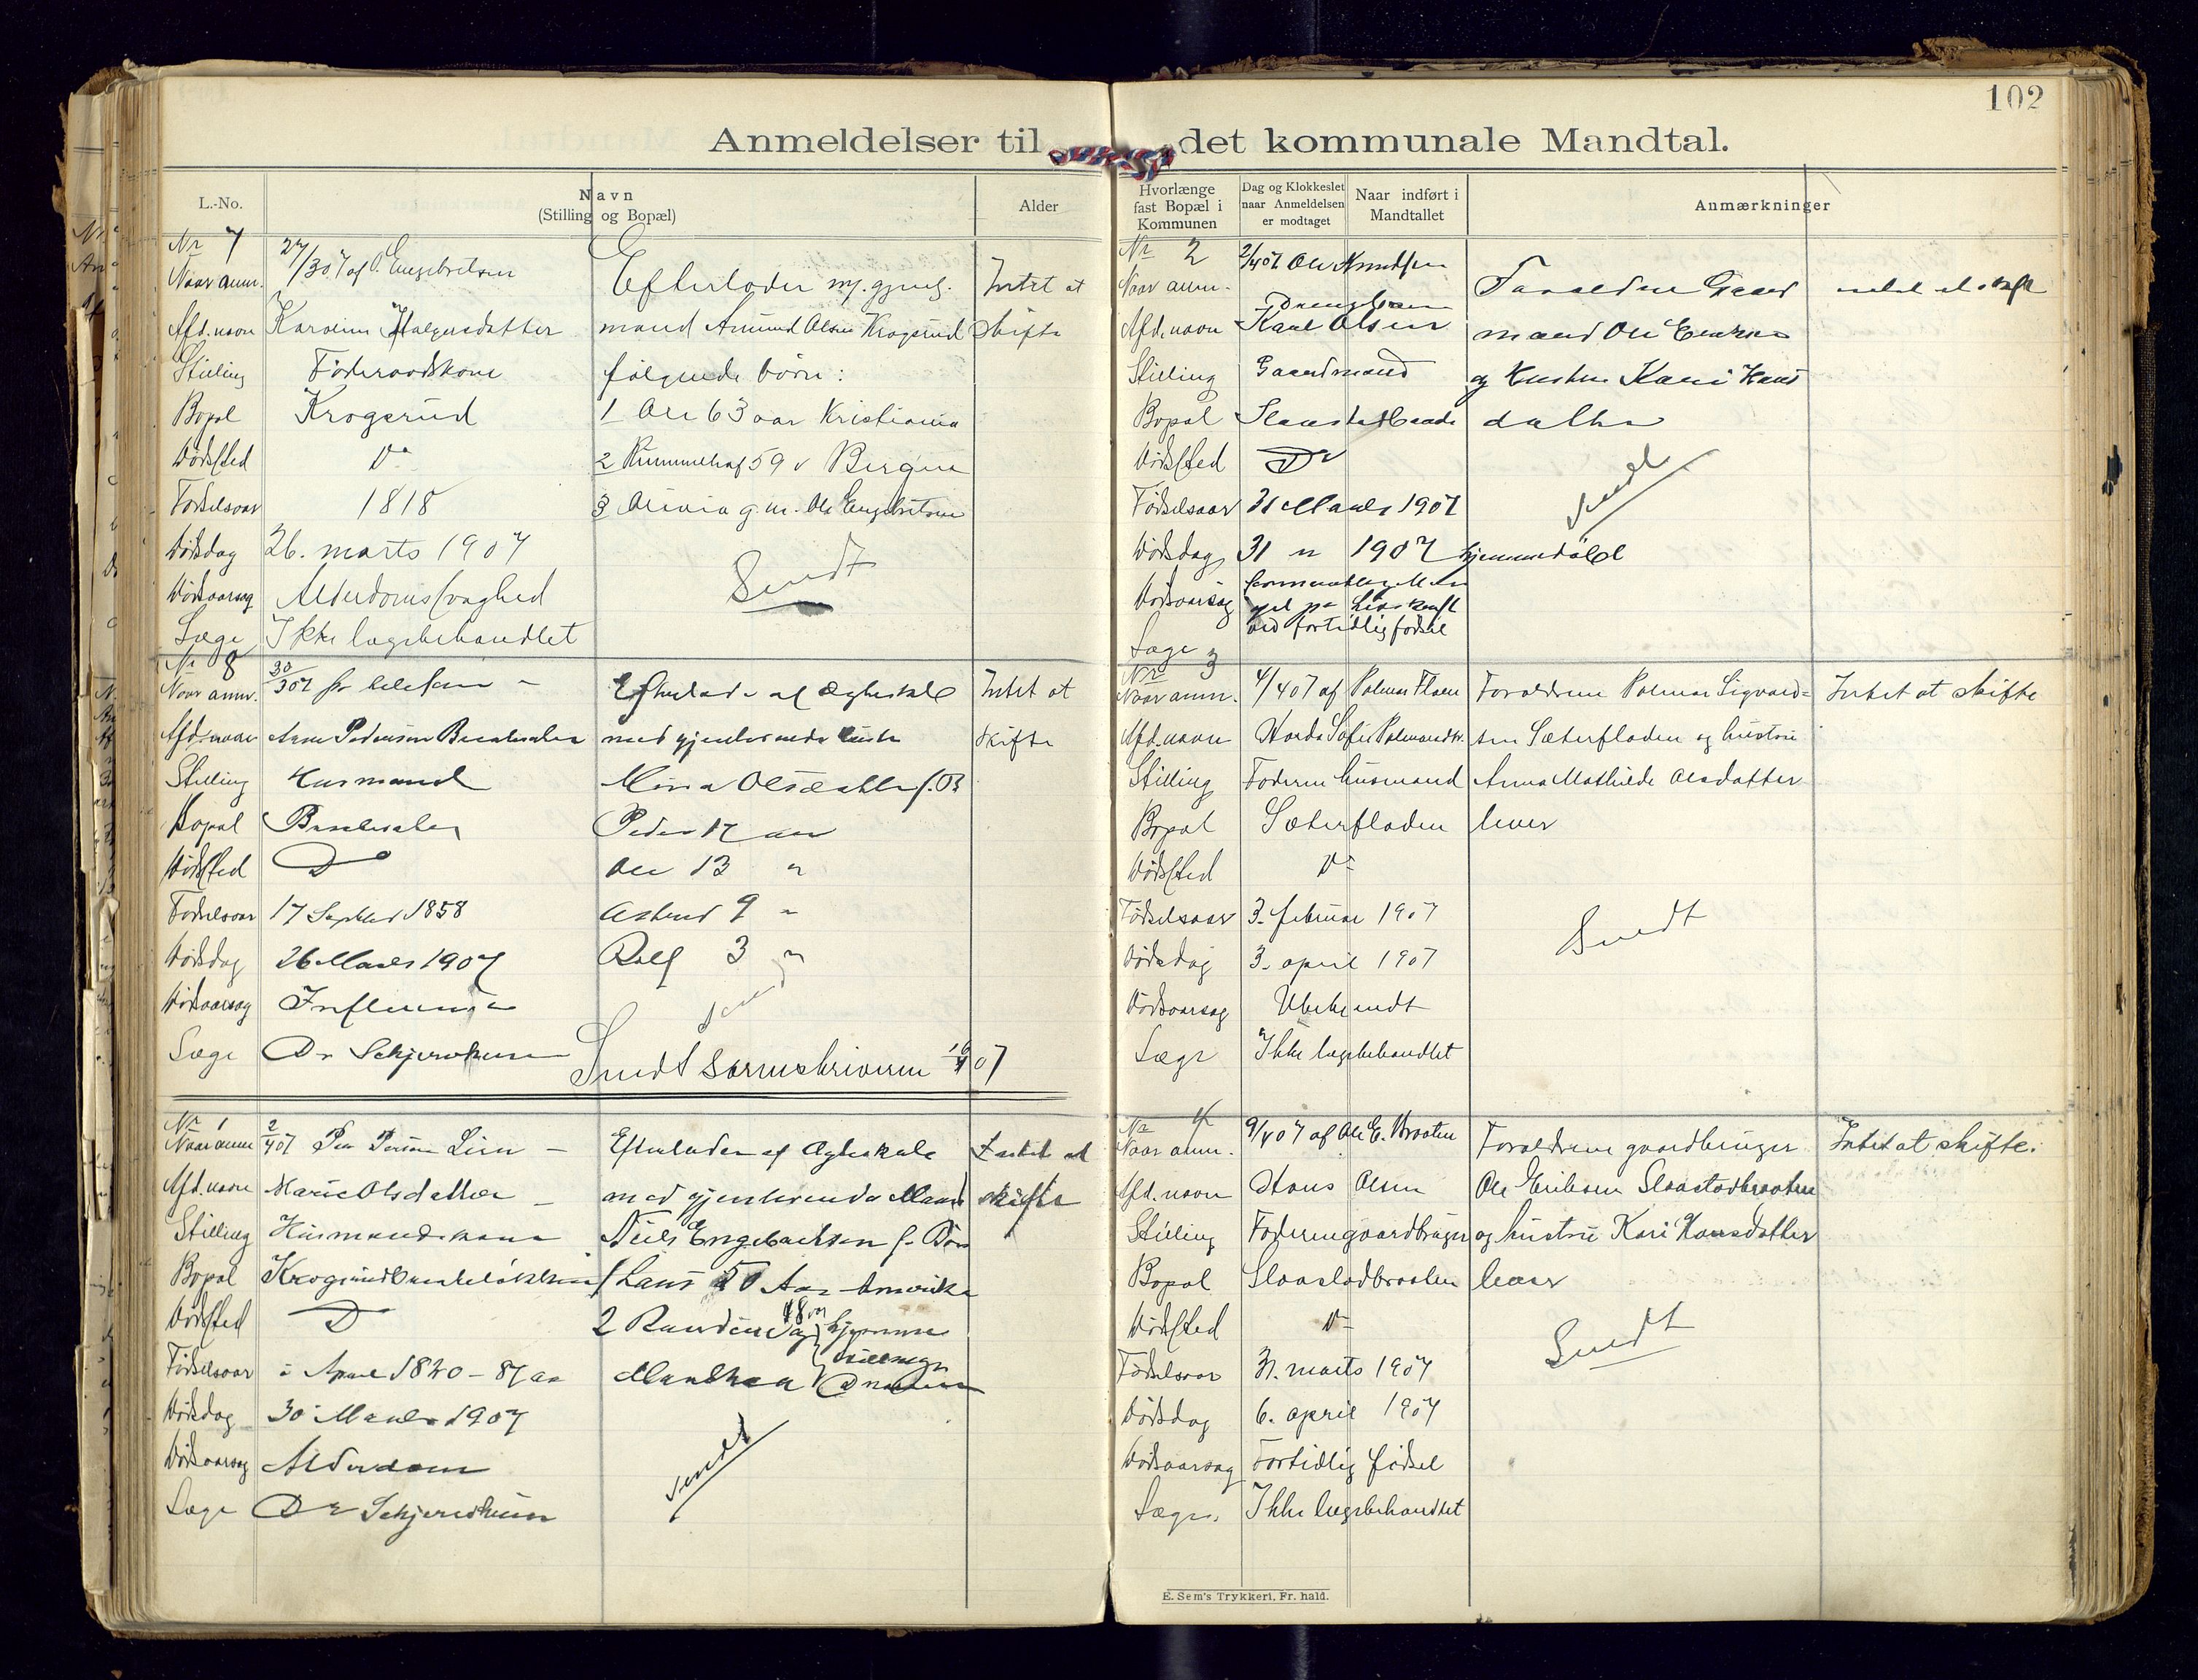 102
Anmeldelser til det kommunale Mandtal.
L.-No.
Navn
(Stilling og Bopæl)
Alder
Nr 7
Naar anm. 27/3 07 af O. Engebretsen
Afd. navn Karoline Halgersdatter
Stilling Føderaadskone
Bopæl Krogsrud
Dødsted Do
Fødselsaar 1818
Dødsdag 26. marts 1907
Dødsaarsag Alderdomssvaghed
Læge Ikke lægebehandlet
Efterlader m/. gjens.
mand Amund Olsen Krogsrud
følgende børn:
1 Ole 63 aar Kristiania
2 59 v Bergen
3 Olivia g.m. Ole Engebretsen
Sendt
Intet at
skifte
Nr 8
Naar anm. 30/3 07 pr telefon -
Afd. navn Arne Pedersen
Stilling Husmand
Bopæl
Dødsted Do
Fødselsaar 17 September 1858
Dødsdag 26 Marts 1907
Dødsaarsag Influensa
Læge Dr
Efterlader af Ægteskab
med gjenlevende
Olsdatter f. B
Peder 17 aar
Ole 13 "
Astrid 9 "
Rolf 3 "
Sendt
Sendt Sorenskriveren 07
Intet at
skifte
Nr 1
Naar anm 2/4 07 Per Persen Lien -
Afd. navn Marie Olsdatter -
Stilling Husmandskone
Bopæl
Dødsted D
Fødselsaar i April 1820 - 87 aar
Dødsdag 30 Marts 1907
Dødsaarsag Alderdom
Læge Dr
Efterlader af Ægteskab
med gjenlevende Mand
Niels Engebretsen f. Børn
1 Lars 50 Aar Amerika
2 48 aar hjemme
Mathea
Sendt
Intet at
skifte
Hvorlænge
fast Bopæl i
Kommunen
Dag og Klokkeslet
naar Anmeldelsen
er modtaget
Naar indført i
Mandtallet
Anmærkninger
Nr 2
Naar anm. 2/4 07 Ole Amundsen
Drengebarn
Afd. navn Karl Olsen
Stilling Gaardmand
Bopæl
Dødsted Do
Fødselsaar 31 Marts 1907
Dødsdag 31 " 1907 hjemmedøbt
Dødsaarsag formentlig Man
gel på Livskraft
ved fortidlig fødsel
Læge
Forældre Gaard
mand Ole Eriksen
og Hustru Kari Hans
datter
Sendt
intet at skifte
Nr 3
Naar anm. 4/4 07 af Palmar Floen
Afd. navn Sofie Palmarsdtr.
Stilling Faderen husmand
Bopæl Sæterfladen
Dødsted Do
Fødselsaar 3. februar 1907
Dødsdag 3. april 1907
Dødsaarsag Ubekjendt
Læge Ikke lægebehandlet
Forældrene Palmar Sigvard=
sen Sæterfladen og hustru
Anna Mathilde Olsdatter
lever
Sendt
Intet at skifte
Nr 4
Naar anm. 9/4 07 af Ole E. Braaten
Afd. navn Hans Olsen
Stilling Faderen gaardbruger
Bopæl Slaastadbraaten
Dødsted Do
Fødselsaar 31. marts 1907
Dødsdag 6. april 1907
Dødsaarsag Fortidlig fødsel
Læge. Ikke lægebehandlet
Forældrene gaardbruger
Ole Eriksen Slaastadbraaten
og hustru Kari Hansdatter
lever
Sendt
Intet at skifte.
E. Sem's Trykkeri, Fr.hald.